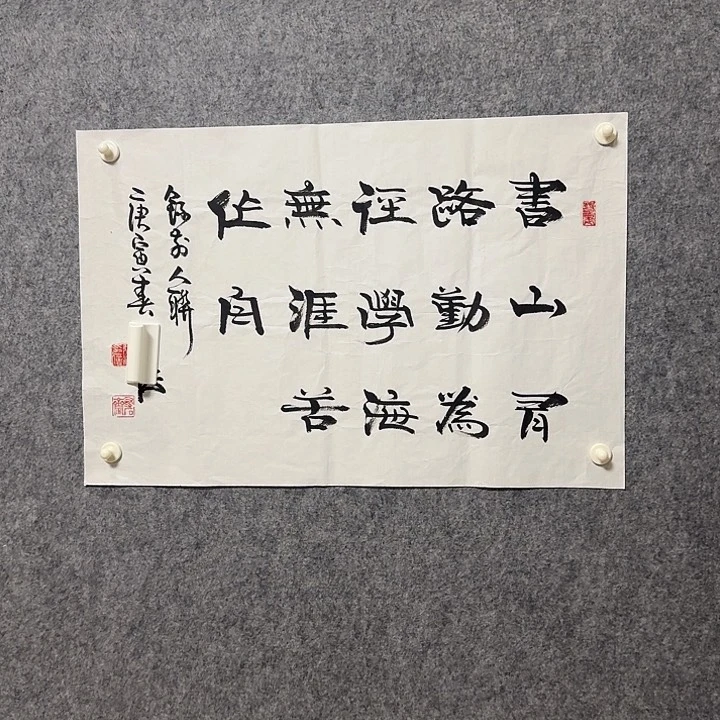 書山有
路勤為
徑學海
無涯苦
作舟
錄前人聯
庚寅春